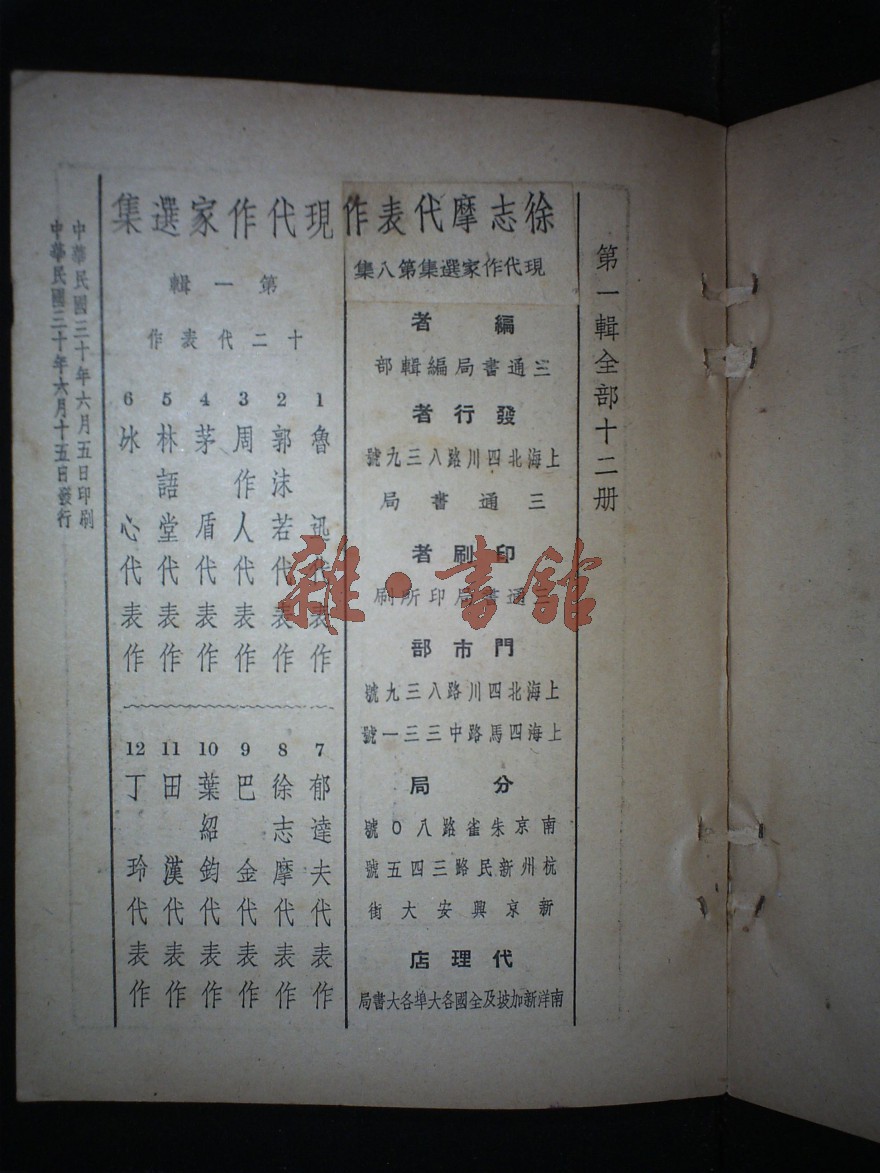 第一輯全部十二册
徐志摩代表作
現代作家選集第八集
編者
三通書局編輯部
發行者
上海北四川路八三九號
三通書局
印刷者
三通書局印刷所
門市部
上海北四川路八三九號
上海四馬路中三三一號
分局
南京朱雀路八〇號
杭州新民路三四五號
新京興安大街
代理店
南洋新加坡及全國各大埠各大書局
現代作家選集
第一輯
十二代表作
1 魯迅代表作
2 郭沫若代表作
3 周作人代表作
4 茅盾代表作
5 林語堂代表作
6 冰心代表作
7 郁達夫代表作
8 徐志摩代表作
9 巴金代表作
10 葉紹鈞代表作
11 田漢代表作
12 丁玲代表作
中華民國三十年六月五日印刷
中華民國三十年六月十五日發行
雜·書館